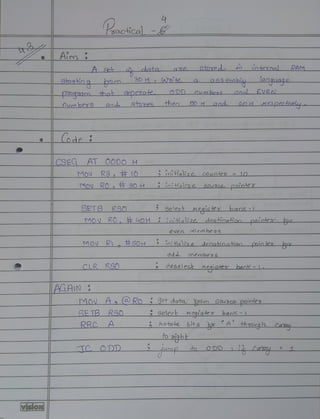 4
Practical - 6
4.3
• Aim :
A set of data are stored in internal RAM
starting from 30 H. Write a assembly language
program that seperate ODD numbers and EVEN
numbers and stores then 50 H and 40 H respectively.
• Code :
CSEG AT 0000 H
MOV R3, # 10 ; initialize counter = 10
MOV R0, # 30 H ; initialize source pointer
SETB RS0 ; select register bank - 1
MOV R0, # 40H ; initialize destination pointer for
even numbers
MOV R1, # 50H ; initialize destination pointer for
odd numbers
CLR RS0 ; deselect register bank - 1.
AGAIN :
MOV A, @R0 ; get data from source pointer
SETB RS0 ; select register bank - 1
RRC A ; rotate bits for "A" through carry
to right
JC ODD ; jump to ODD, if carry = 1
vision